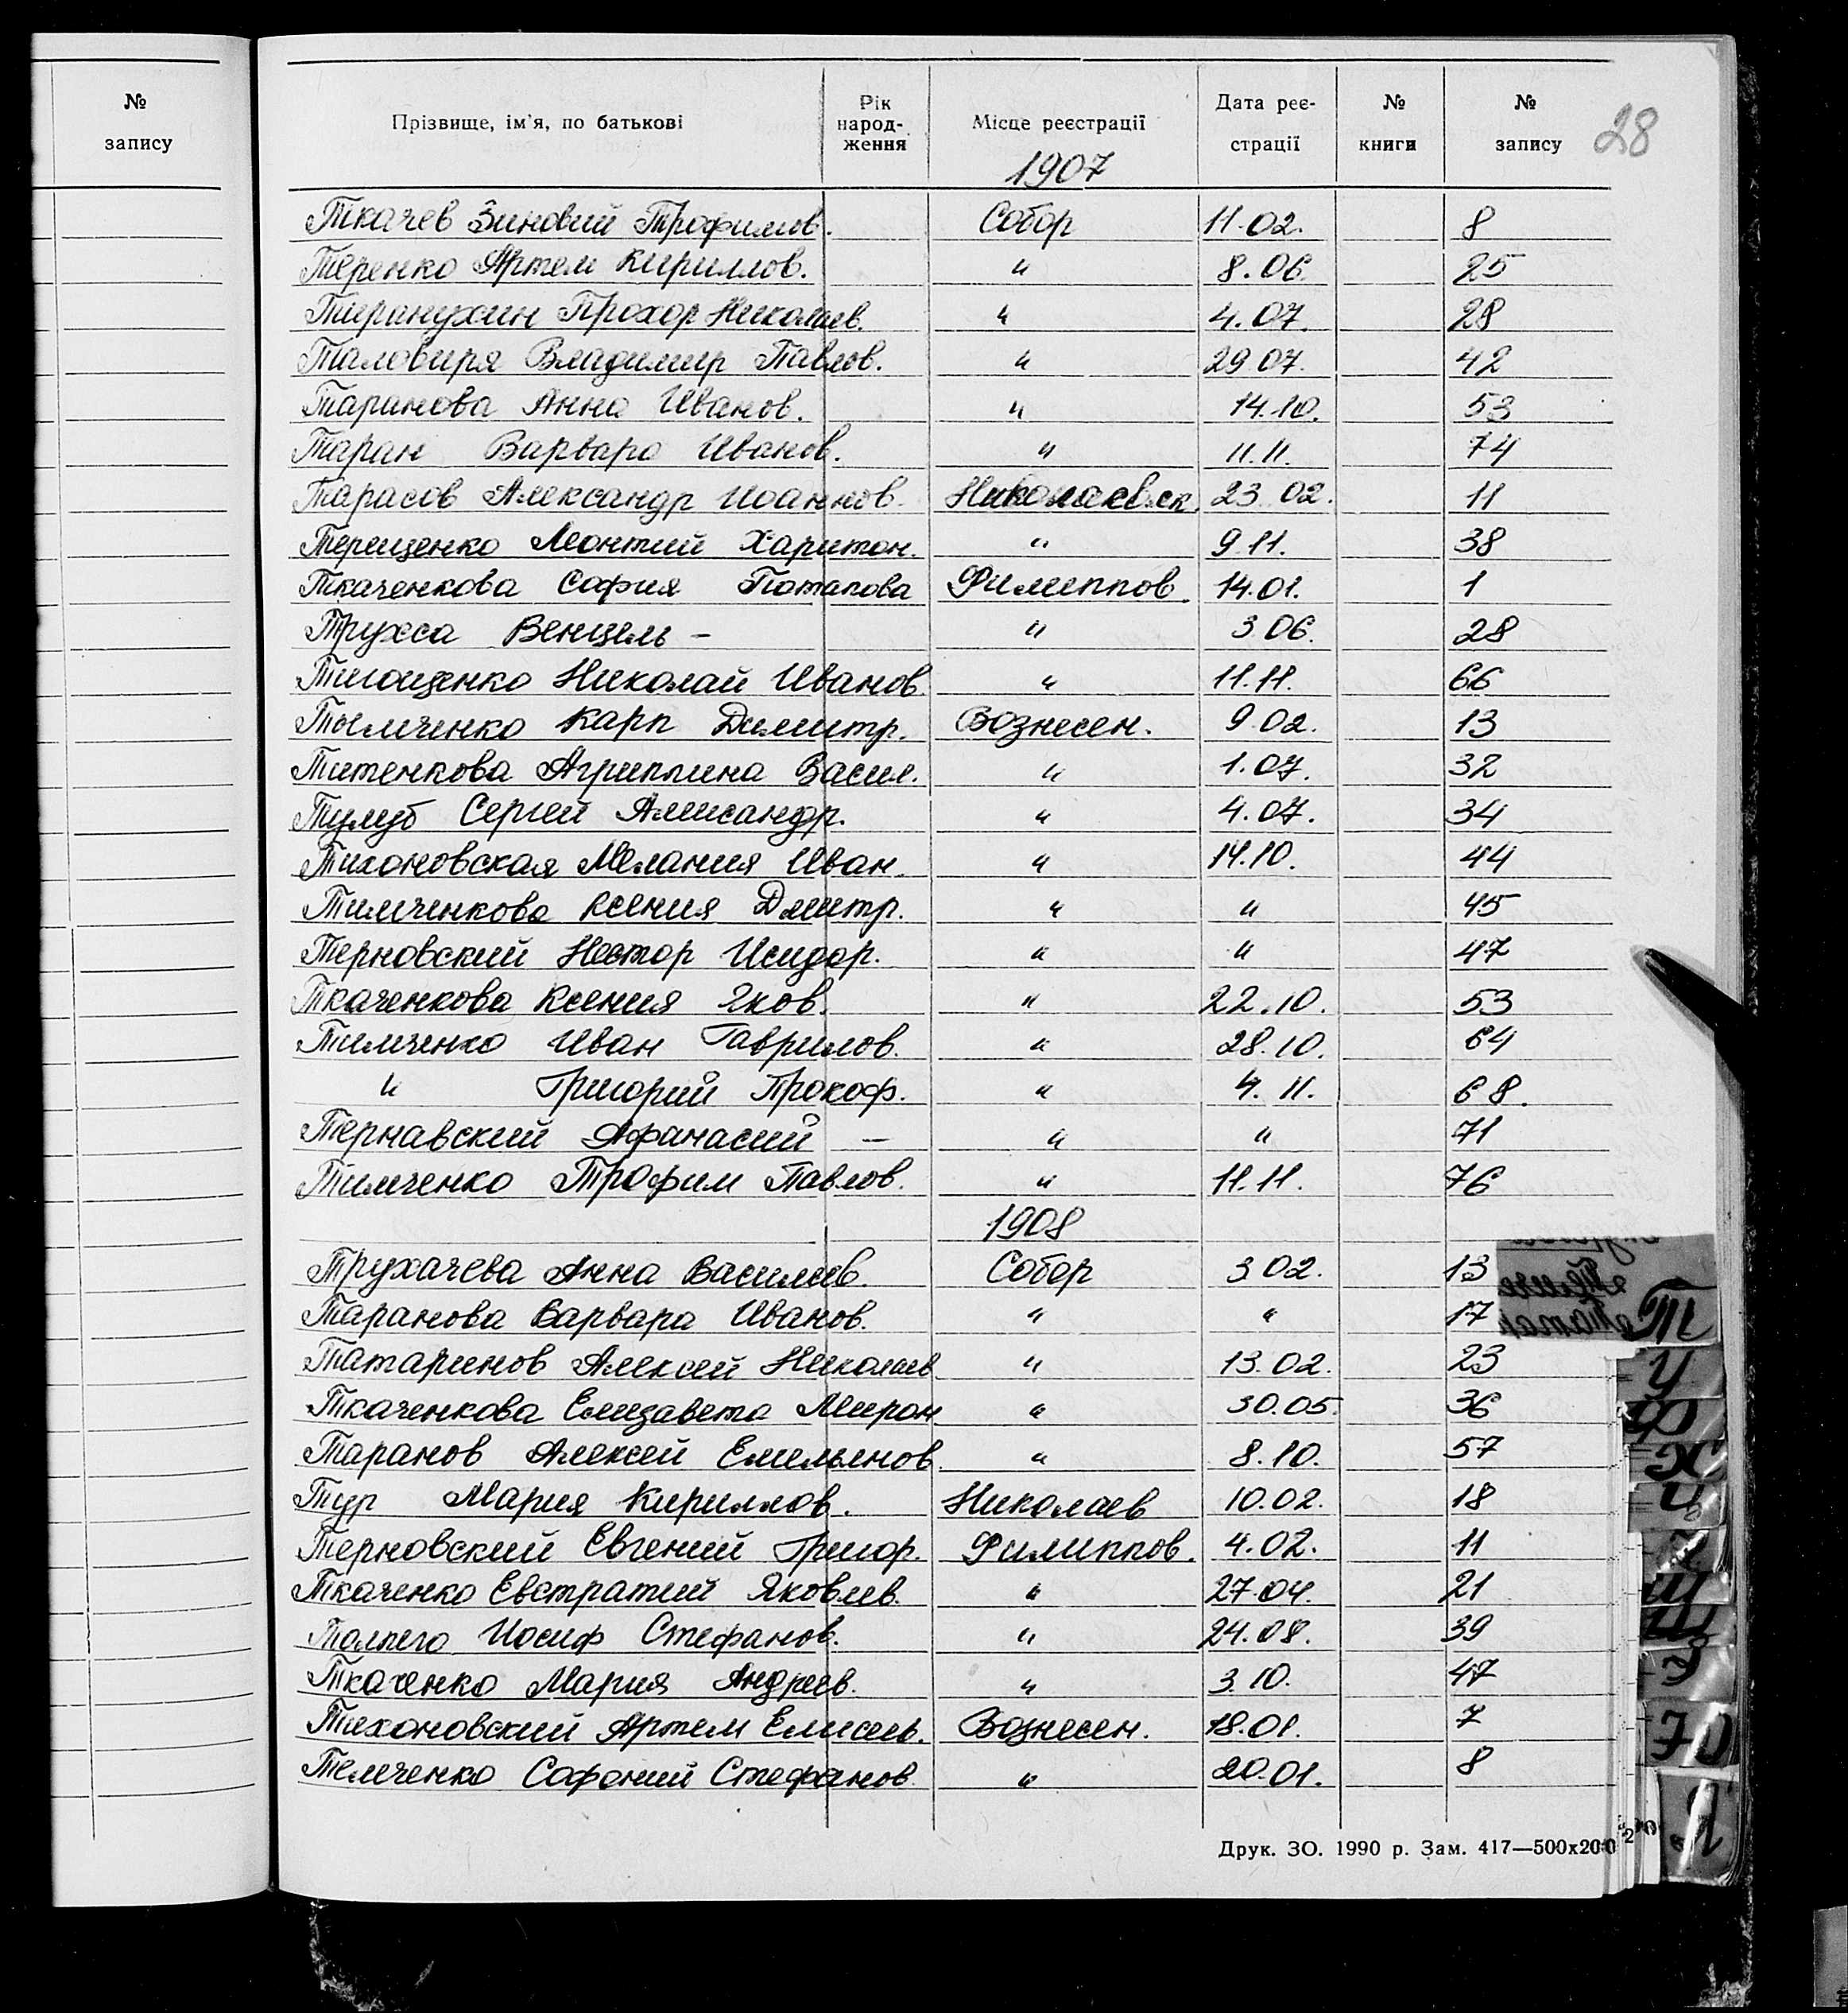 №
запису
Прізвище, ім'я, по батькові Рік народ- ження Місце реєстрації Дата реє- страції № книги № запису 28
1907
Ткачев Зиновий Трофимов. Собор 11.02. 8
Теренко Артем Кириллов. " 8.06. 25
Прохор Николаев. " 4.07. 28
Таловиря Владимир Павлов. " 29.07. 42
Таранова Анна Иванов. " 14.10. 53
Таран Варвара Иванов. " 11.11. 74
Тарасов Александр Иоаннов. Николаевск. 23.02. 11
Терещенко Леонтий Харитон. " 9.11. 38
Ткаченкова София Потапова Филиппов. 14.01. 1
Трухса Венцель - " 3 06. 28
Тимощенко Николай Иванов. " 11.11. 66
Тымченко Карп Димитр. Вознесен. 9.02. 13
Титенкова Агриппина Васил. " 1.07. 32
Тулуб Сергей Александр. " 4.07. 34
Тихоновская Мелания Иван. " 14.10. 44
Тимченкова Ксения Дмитр. " " 45
Терновский Нестор Исидор. " " 47
Ткаченкова Ксения Яков. " 22.10. 53
Тимченко Иван Гаврилов. " 28.10. 64
" Григорий Прокоф. " 4.11. 68.
Тернавский Афанасий — " " 71
Тимченко Трофим Павлов. " 11.11. 76
1908
Трухачева Анна Василиев. Собор 3 02. 13
Таранова Варвара Иванов. " " 17
Татаринов Алексей Николаев " 13.02. 23
Ткаченкова Елизавета Мирон " 30.05. 36
Таранов Алексей Емельянов. " 8.10. 57
Тур Мария Кириллов. Николаев 10.02. 18
Терновский Евгений Григор. Филиппов. 4.02. 11
Ткаченко Евстратий Яковлев. " 27.04. 21
Толпего Иосиф Стефанов. " 24.08. 39
Ткаченко Мария Андреев. " 3.10. 47
Тихоновский Артем Елисеев. Вознесен. 18.01. 7
Темченко Софоний Стефанов. " 20.01. 8
Т
У
Ф
Х
Ц
Ч
Ш
Щ
Э
Ю
Я
Друк. ЗО. 1990 р. Зам. 417—500х200